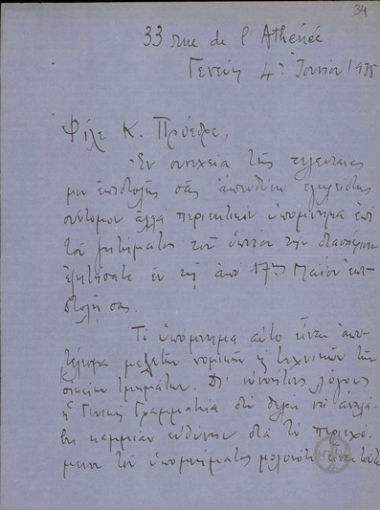 34
33 rue de l'Athénée
Γενεύη 4η Ιουνίου 1935
Φίλε Κ. Πρόεδρε,
Εν συνεχεία της τελευταίας
μου επιστολής σας απευθύνω εγκλείστως
σύντομον αλλά περιεκτικόν υπόμνημα επί
του ζητήματος του οποίου την διασάφησιν
εζητήσατε εν τη από 17ης Μαΐου επι-
στολή σας.
Το υπόμνημα αυτό είναι απο-
τέλεσμα μελετών νομικών ή τεχνικών των
οικείων τμημάτων. Δι' ευνοήτους λόγους
η Γενική Γραμματεία δεν θέλει να αναλά-
βη καμμίαν ευθύνην διά το περιεχό-
μενον του υπομνήματος μολονότι είναι